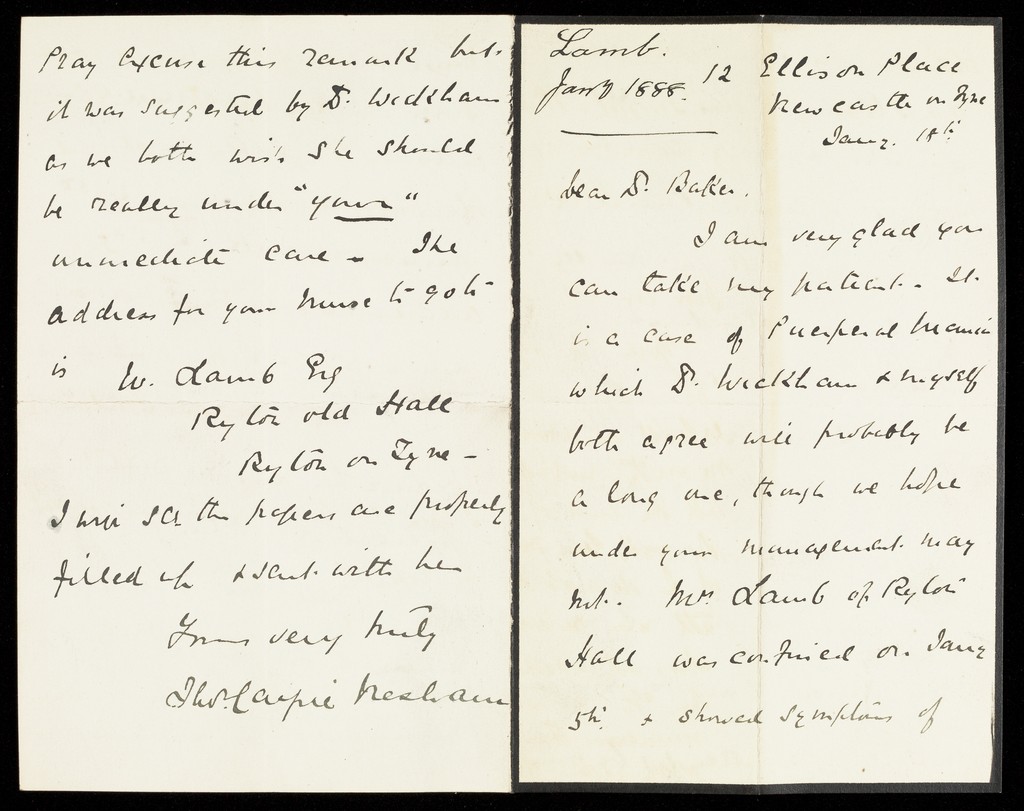 Lamb.
Jany 1888.
12 Ellison Place
Newcastle on Tyne
Jany.
Dear Dr. Baker.
I am very glad you
can take my patient. It
is a case of Puerperal Mania
which Dr. Wickham & myself
both agree will probably be
a long one, though we hope
under your management may
not. Mrs Lamb of Ryton
Hall was confined on Jany
5th. & showed symptoms of
Pray excuse this remark but
it was suggested by Dr. Wickham
as we both wish she should
be really under "your"
immediate care - The
address for your nurse to go to
is W. Lamb Esq
Ryton old Hall
Ryton on Tyne -
I will see the papers are properly
filled up & sent with her
Yours very truly
Thos. Nesham